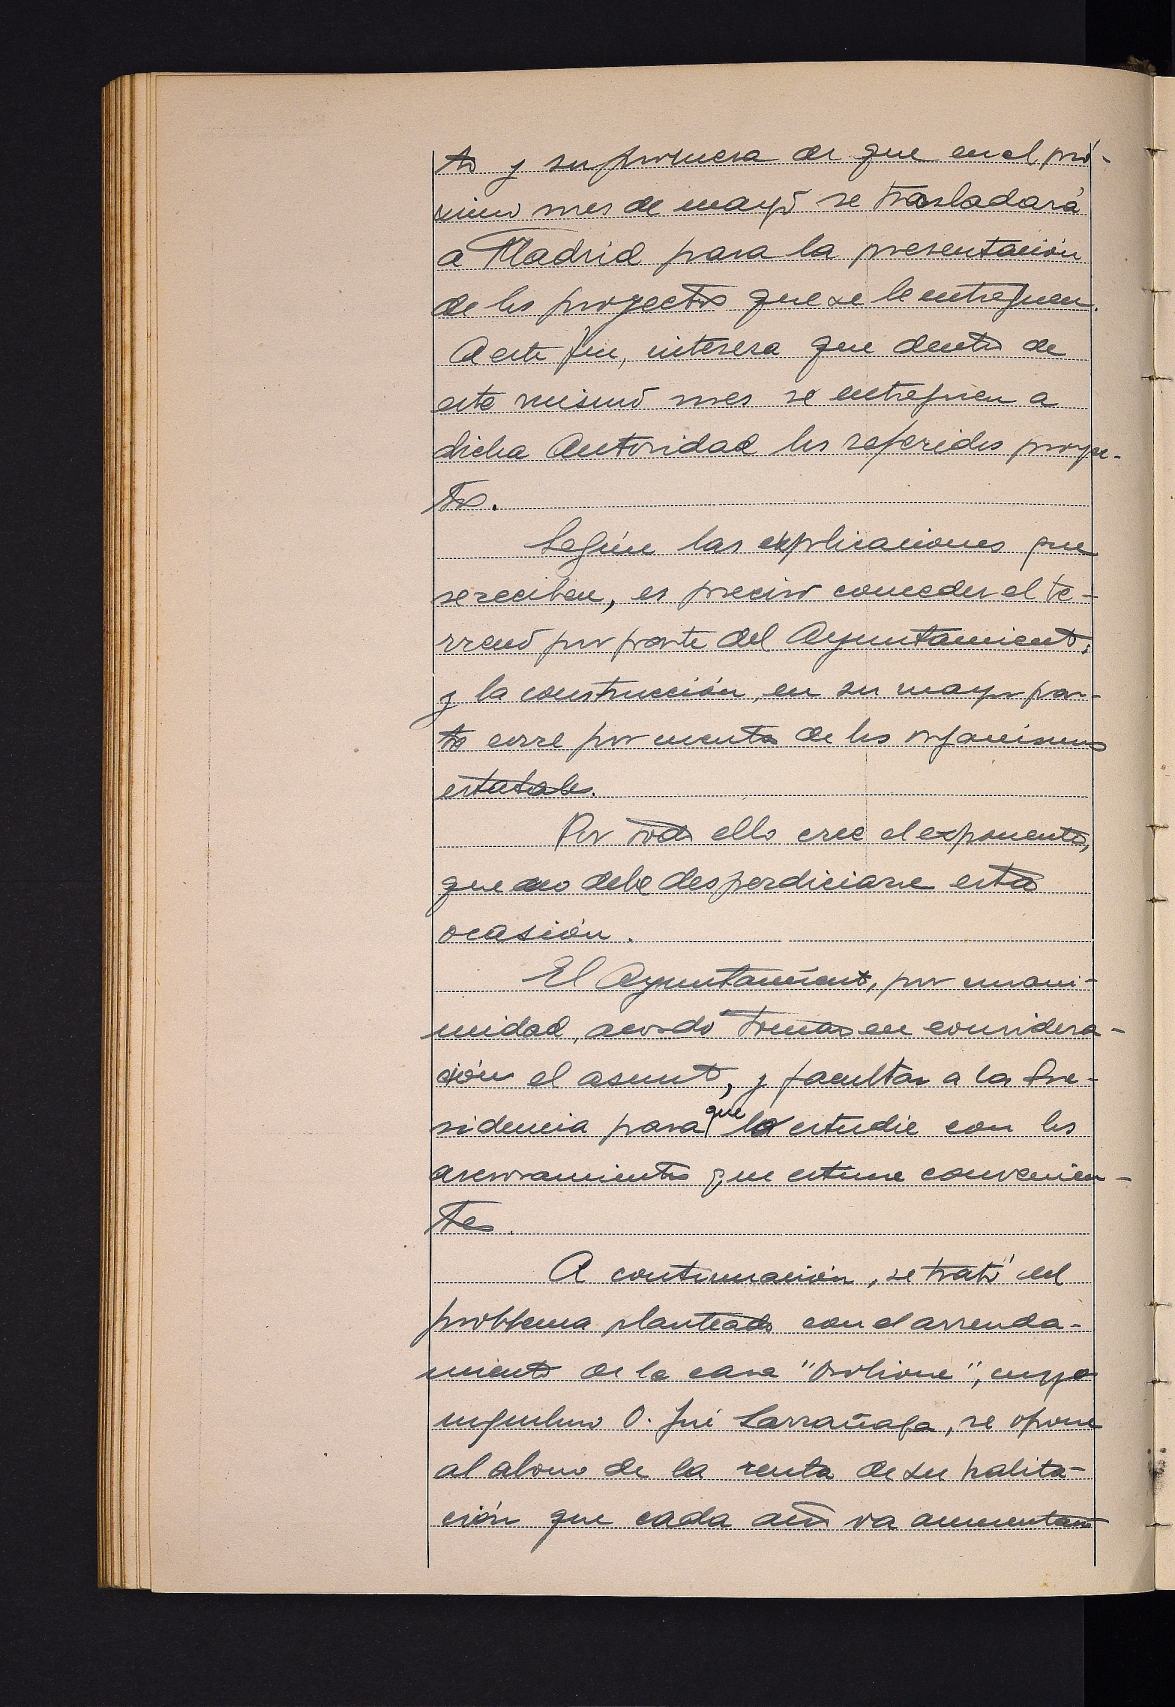 to y su promesa de que en el pró-
ximo mes de mayo se trasladará
a Madrid para la presentación
de los proyectos que se le entreguen.
A este fin, interesa que dentro de
este mismo mes se entreguen a
dicha Autoridad los referidos proyec-
tos.
Según las explicaciones que
se reciben, es preciso conceder el te-
rreno por parte del Ayuntamiento;
y la construcción, en su mayor par-
te corre por cuenta de los organismos
estatales.
Por todo ello cree el exponente,
que no debe desperdiciarse esta
ocasión.
El Ayuntamiento, por unani-
midad, acordó tomar en considera-
ción el asunto, y facultar a la Pre-
sidencia para que lo estudie con los
asesoramientos que estime convenien-
tes.
A continuación, se trató del
problema planteado con el arrenda-
miento de la casa cuyo
inquilino D. José Larrañaga, se opone
al abono de la renta de su habita-
ción que cada año va aumentando